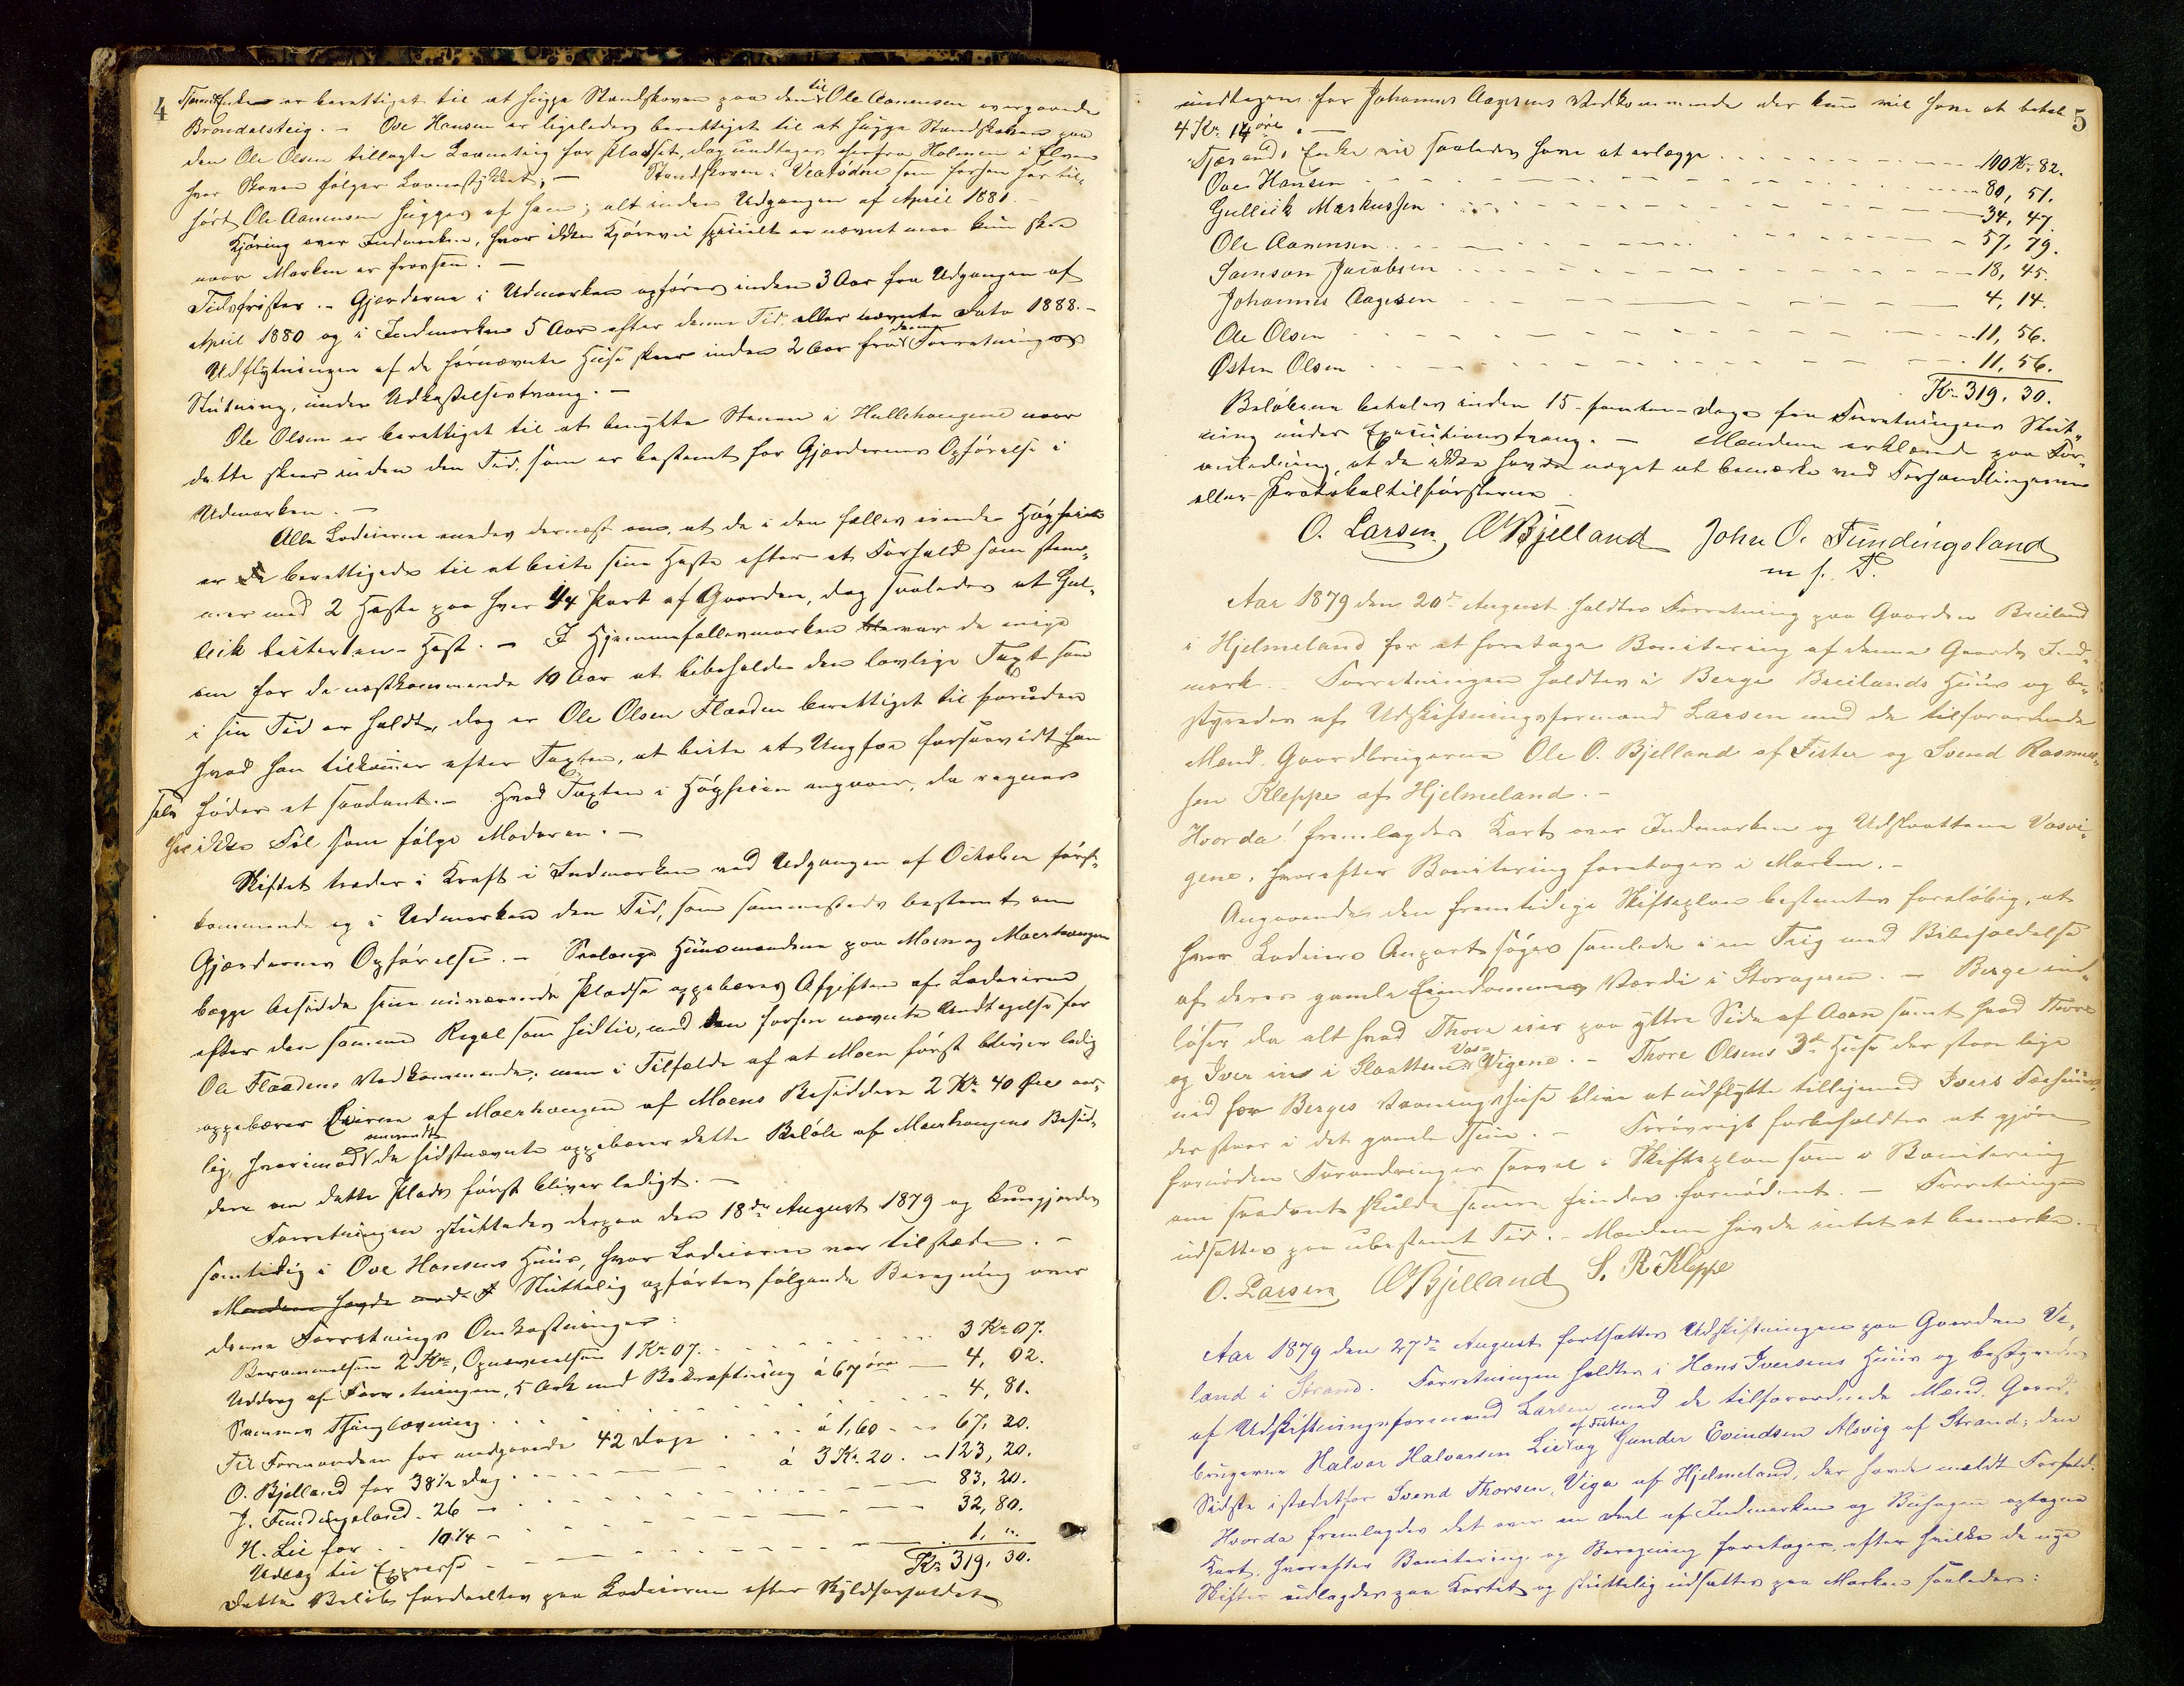 4
Tjerands Enke er berettiget til at hugge Standskoven paa den til Ole Aanensen overgaaende
Brøndalsteig. – Ove Hansen er ligeledes berettiget til at hugge Standskoven paa
den Ole Olsen tillagte Teig for Pladset, dog undtages herfra Holmen i Elven
hvor Skoven følger – Standskoven i som forhen har til-
hørt Ole Aanensen hugges af ham; alt inden Udgangen af April 1881. –
Kjøring over Indmarken, hvor ikke Kjørevei specielt er nævnt maa kun skee
naar Marken er frossen. –
Tidsfrister. – Gjerderne i Udmarken opføres inden 3 Aar fra Udgangen af
April 1880 og i Indmarken 5 Aar efter denne Tid eller nævnte Dato 1888. –
Udflytningen af de førnævnte Huse skeer inden 2 Aar fra denne Forretnings
Slutning, under Udkastelsestvang. –
Ole Olsen er berettiget til at benytte Stenene i Hullehaugene naar
dette skeer inden den Tid, som er bestemt for Gjerdernes Opførelse i
Udmarken. –
Alle Lodeierne enedes dernæst om, at de i den fælles eiende Høgheien
er de berettigede til at beite sine Heste efter et Forhold som stem-
mer med 2 Heste paa hver 1/4 Part af Gaarden, dog saaledes at Gul-
leik beiter en Hest. – I Hjemmefællesmarken var de enige
om for de næstkommende 10 Aar at bibeholde den lovlige Taxt som
i sin Tid er holdt, dog er Ole Olsen Flaaden berettiget til foruden
hvad han tilkommer efter Taxten, at beite et Ungfæ forsaavidt han
selv føder et saadant. – Hvad Taxten i Høgheien angaaer, da regnes
her ikke Føl som følge Moderen. –
Skiftet træder i Kraft i Indmarken ved Udgangen af October først-
kommende og i Udmarken den Tid, som sammesteds bestemt om
Gjerdernes Opførelse. – Saalænge Huusmændene paa Moen og Moerhaugen
begge besidde sine nuværende Pladse oppebæres Afgiften af Lodeierne
efter den samme Regel som hidtil, med den forhen nævnte Undtagelse for
Ole Flaadens Vedkommende; men i Tilfælde af at Moen først bliver ledig
oppebærer Eieren af Moerhaugen af Moens Besiddere 2 Kr. 40 Øre aar-
lig, hvorimod omvendt de sidstnævnte oppebærer dette Beløb af Moerhaugens Besid-
dere om dette Plads først bliver ledigt. –
Forretningen sluttedes derpaa den 18de August 1879 og kundgjordes
samtidig i Ove Hansens Huus, hvor Lodeierne var tilstede. –
Mændene havde Sluttelig opførtes følgende Beregning over
denne Forretnings Omkostninger:
Berammelsen 2 Kr., Opnævnelsen 1 Kr. 07. 3 Kr. 07.
Uddrag af Forretningen, 5 Ark med Bekræftning à 67 øre 4, 02.
Sammes Thinglæsning 4, 81.
Til Formanden for medgaaede 42 Dage à 1,60 67, 20.
O. Bjelland for 38 1/2 Dag à 3 Kr. 20. 123, 20.
J. Fundingsland. 26 – 83, 20.
H. Lie for 10 1/4 – 32, 80.
Udlæg til Expresse 1, "
Kr. 319. 30.
Dette Beløb fordeeltes paa Lodeierne efter Skyldforholdet
5
undtagen for Johannes Aagesens Vedkommende der kun vil have at betale
4 Kr. 14 øre. –
Tjerands Enke vil saaledes have at erlægge 100 Kr. 82.
Ove Hansen 80, 51.
Gulleik Markussen 34, 47.
Ole Aanensen 57, 79.
Samson Jacobsen 18, 45.
Johannes Aagesen 4, 14.
Ole Olsen 11, 56.
Østen Olsen 11, 56.
Kr. 319. 30.
Beløbene betales inden 15 – femten – Dage fra Forretningens Slut-
ning under Executionstvang. – Mændene erklærede paa For-
anledning, at de ikke havde noget at bemærke ved Forhandlingerne
eller Protokoltilførslerne.
O. Larsen OBjelland John O. Fundingsland
m f. P.
Aar 1879 den 20de August holdtes Forretning paa Gaarden Breiland
i Hjelmeland for at foretage Bonitering af denne Gaards Ind-
mark. Forretningen holdtes i Berge Breilands Huus og be-
styredes af Udskiftningsformand Larsen med de tilforordnede
Mænd Gaardbrugerne Ole O. Bjelland af Fister og Svend Rasmus-
sen Kleppe af Hjelmeland. –
Hvorda! fremlagdes Kart over Indmarken og Udslaatten Vasvi-
gene, hvorefter Bonitering foretoges i Marken. –
Angaaende den fremtidige Skifteplan bestemtes foreløbig, at
hver Lodeiers Anpart søges samlede i en Teig med Bibeholdelse
af deres gamle Eiendommes Værdi i Storageren. – Berge ind-
løser da alt hvad Thore eier paa yttre Side af Aaen samt hvad Thore
og Iver eier i Slaatten Vas-Vigene. – Thore Olsens 3de Huse der staar lige
ned for Berges Vaaningshuse blive at udflytte tilligemed Ivers Fæhuus
der staar i det gamle Thun. – Forøvrigt forbeholdtes at gjøre
fornødne Forandringer saavel i Skifteplan som i Bonitering
om saadant skulde findes fornødent. – Forretningen
udsattes paa ubestemt Tid. – Mændene havde intet at bemærke. –
O. Larsen OBjelland S. R. Kleppe
Aar 1879 den 27de August fortsattes Udskiftningen paa Gaarden Ve-
land i Strand. Forretningen holdtes i Hans Iversens Huus og bestyredes
af Udskiftningsformand Larsen med de tilforordnede Mænd Gaard-
brugerne Halvor Halvorsen Lie af Fister og Gunder Evindsen Alsvig af Strand; den
Sidste istedetfor Svend Thorsen Viga af Hjelmeland, der havde meldt Forfald.
Hvorda fremlagdes det over en Deel af Indmarken og Buhagen optagne
Kart, hvorefter Bonitering og Beregning foretoges, efter hvilke de nye
Skifter udlagdes paa Kartet og sluttelig udsattes paa Marken saaledes: